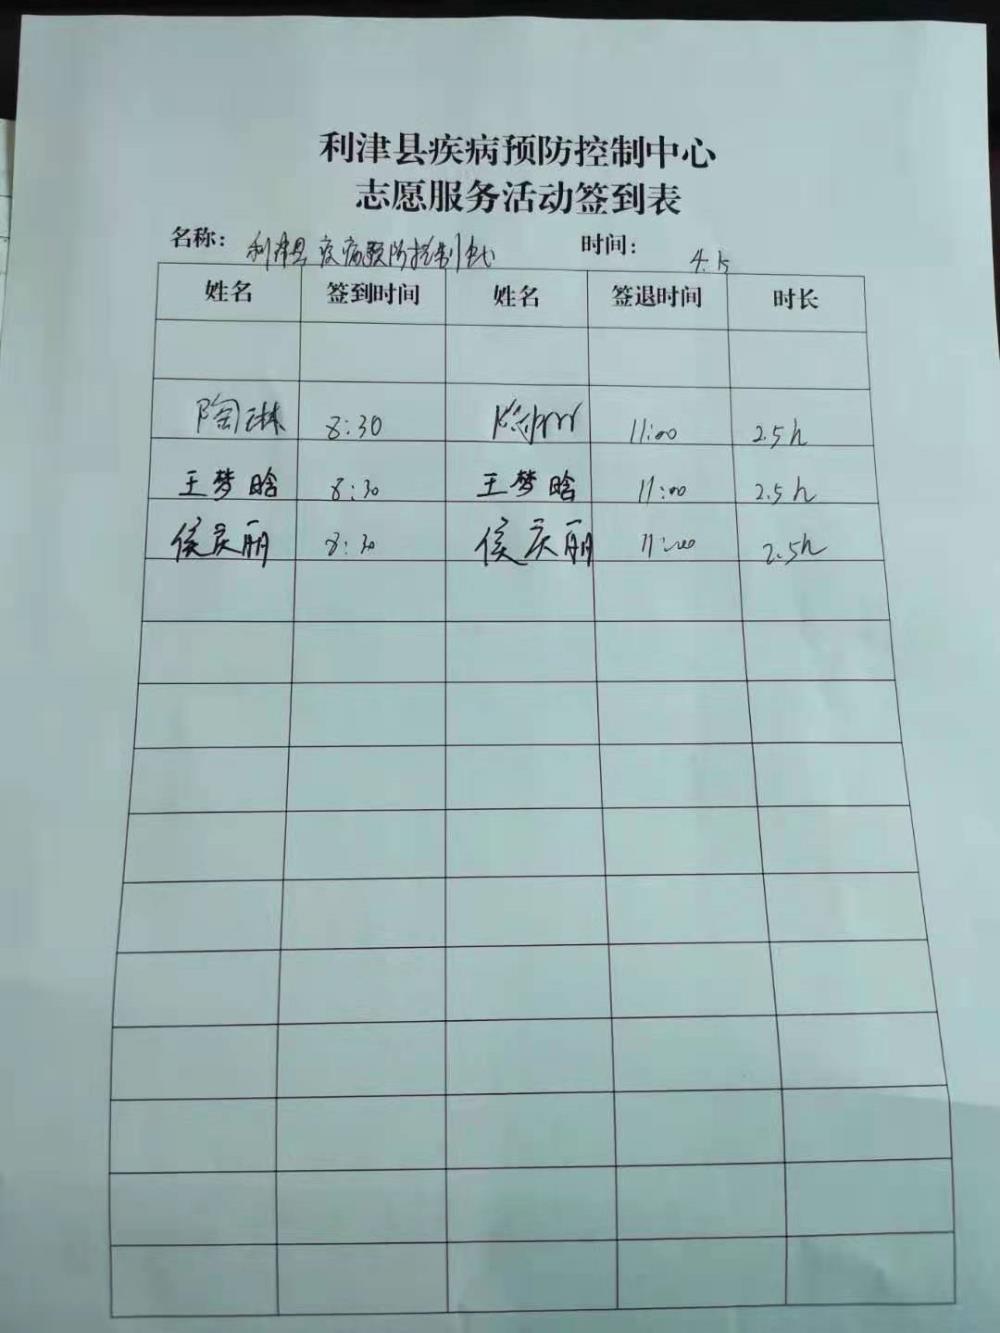 利津县疾病预防控制中心
志愿服务活动签到表
名称: 利津县疾病预防控制中心 时间: 4.15
姓名 签到时间 姓名 签退时间 时长
陶琳 8:30 11:00 2.5h
王梦晗 8:30 王梦晗 11:00 2.5h
侯庆丽 8:30 侯庆丽 11:00 2.5h